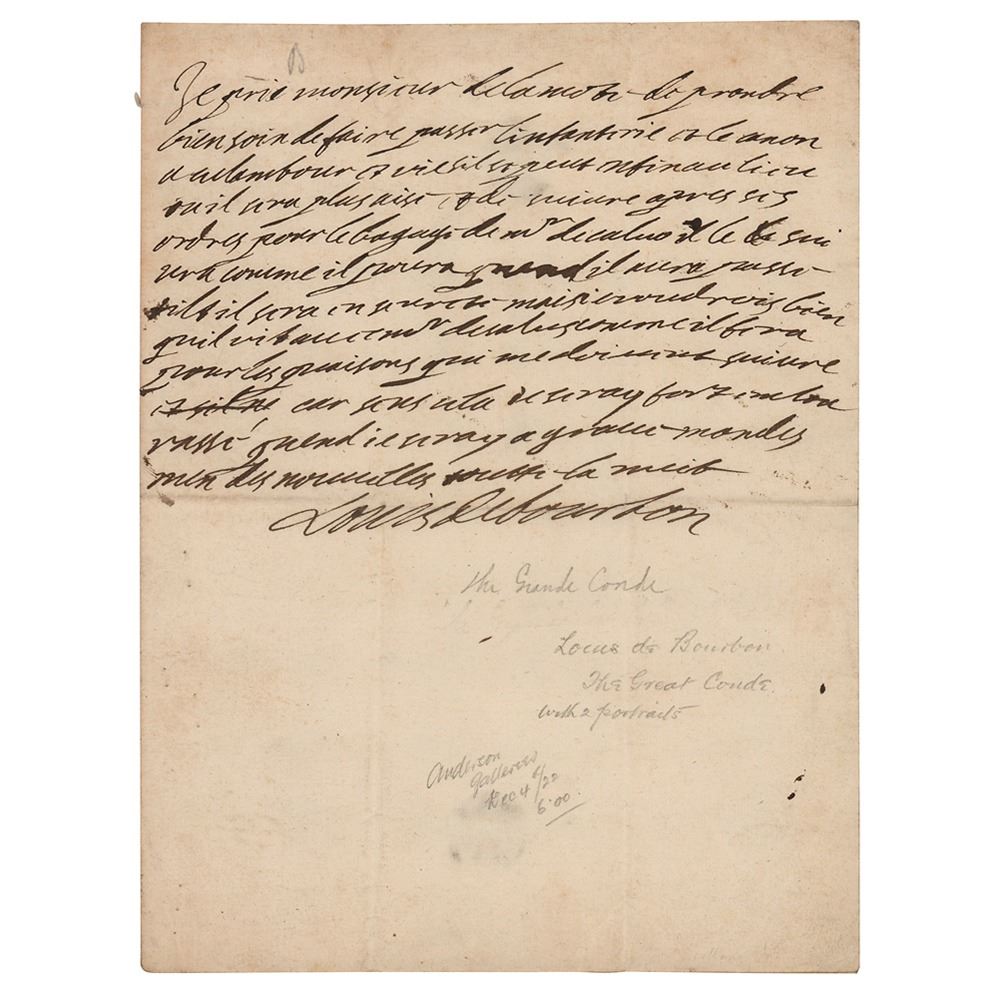 B
Je prie monsieur de lamote de prendre
bien soin de faire passer linfanterie et le canon
a et sil se peut au lieu
ou il sera plus aise et de suivre apres ses
ordres pour le bagage de mr de le sui
vra comme il poura quand il aura passe
il sera en sureté mais ie voudrois bien
quil avec mr de comme il fera
pour les raisons qui me doivent suivre
car sans cela ie seray fort emba
rassé quand ie seray a mandes
men des nouvelles toutte la nuit
Louis de bourbon
The Grande Conde
Louis de Bourbon
The Great Conde.
with 2 portraits
Anderson
Galleries
Dec 4 /22
6.00